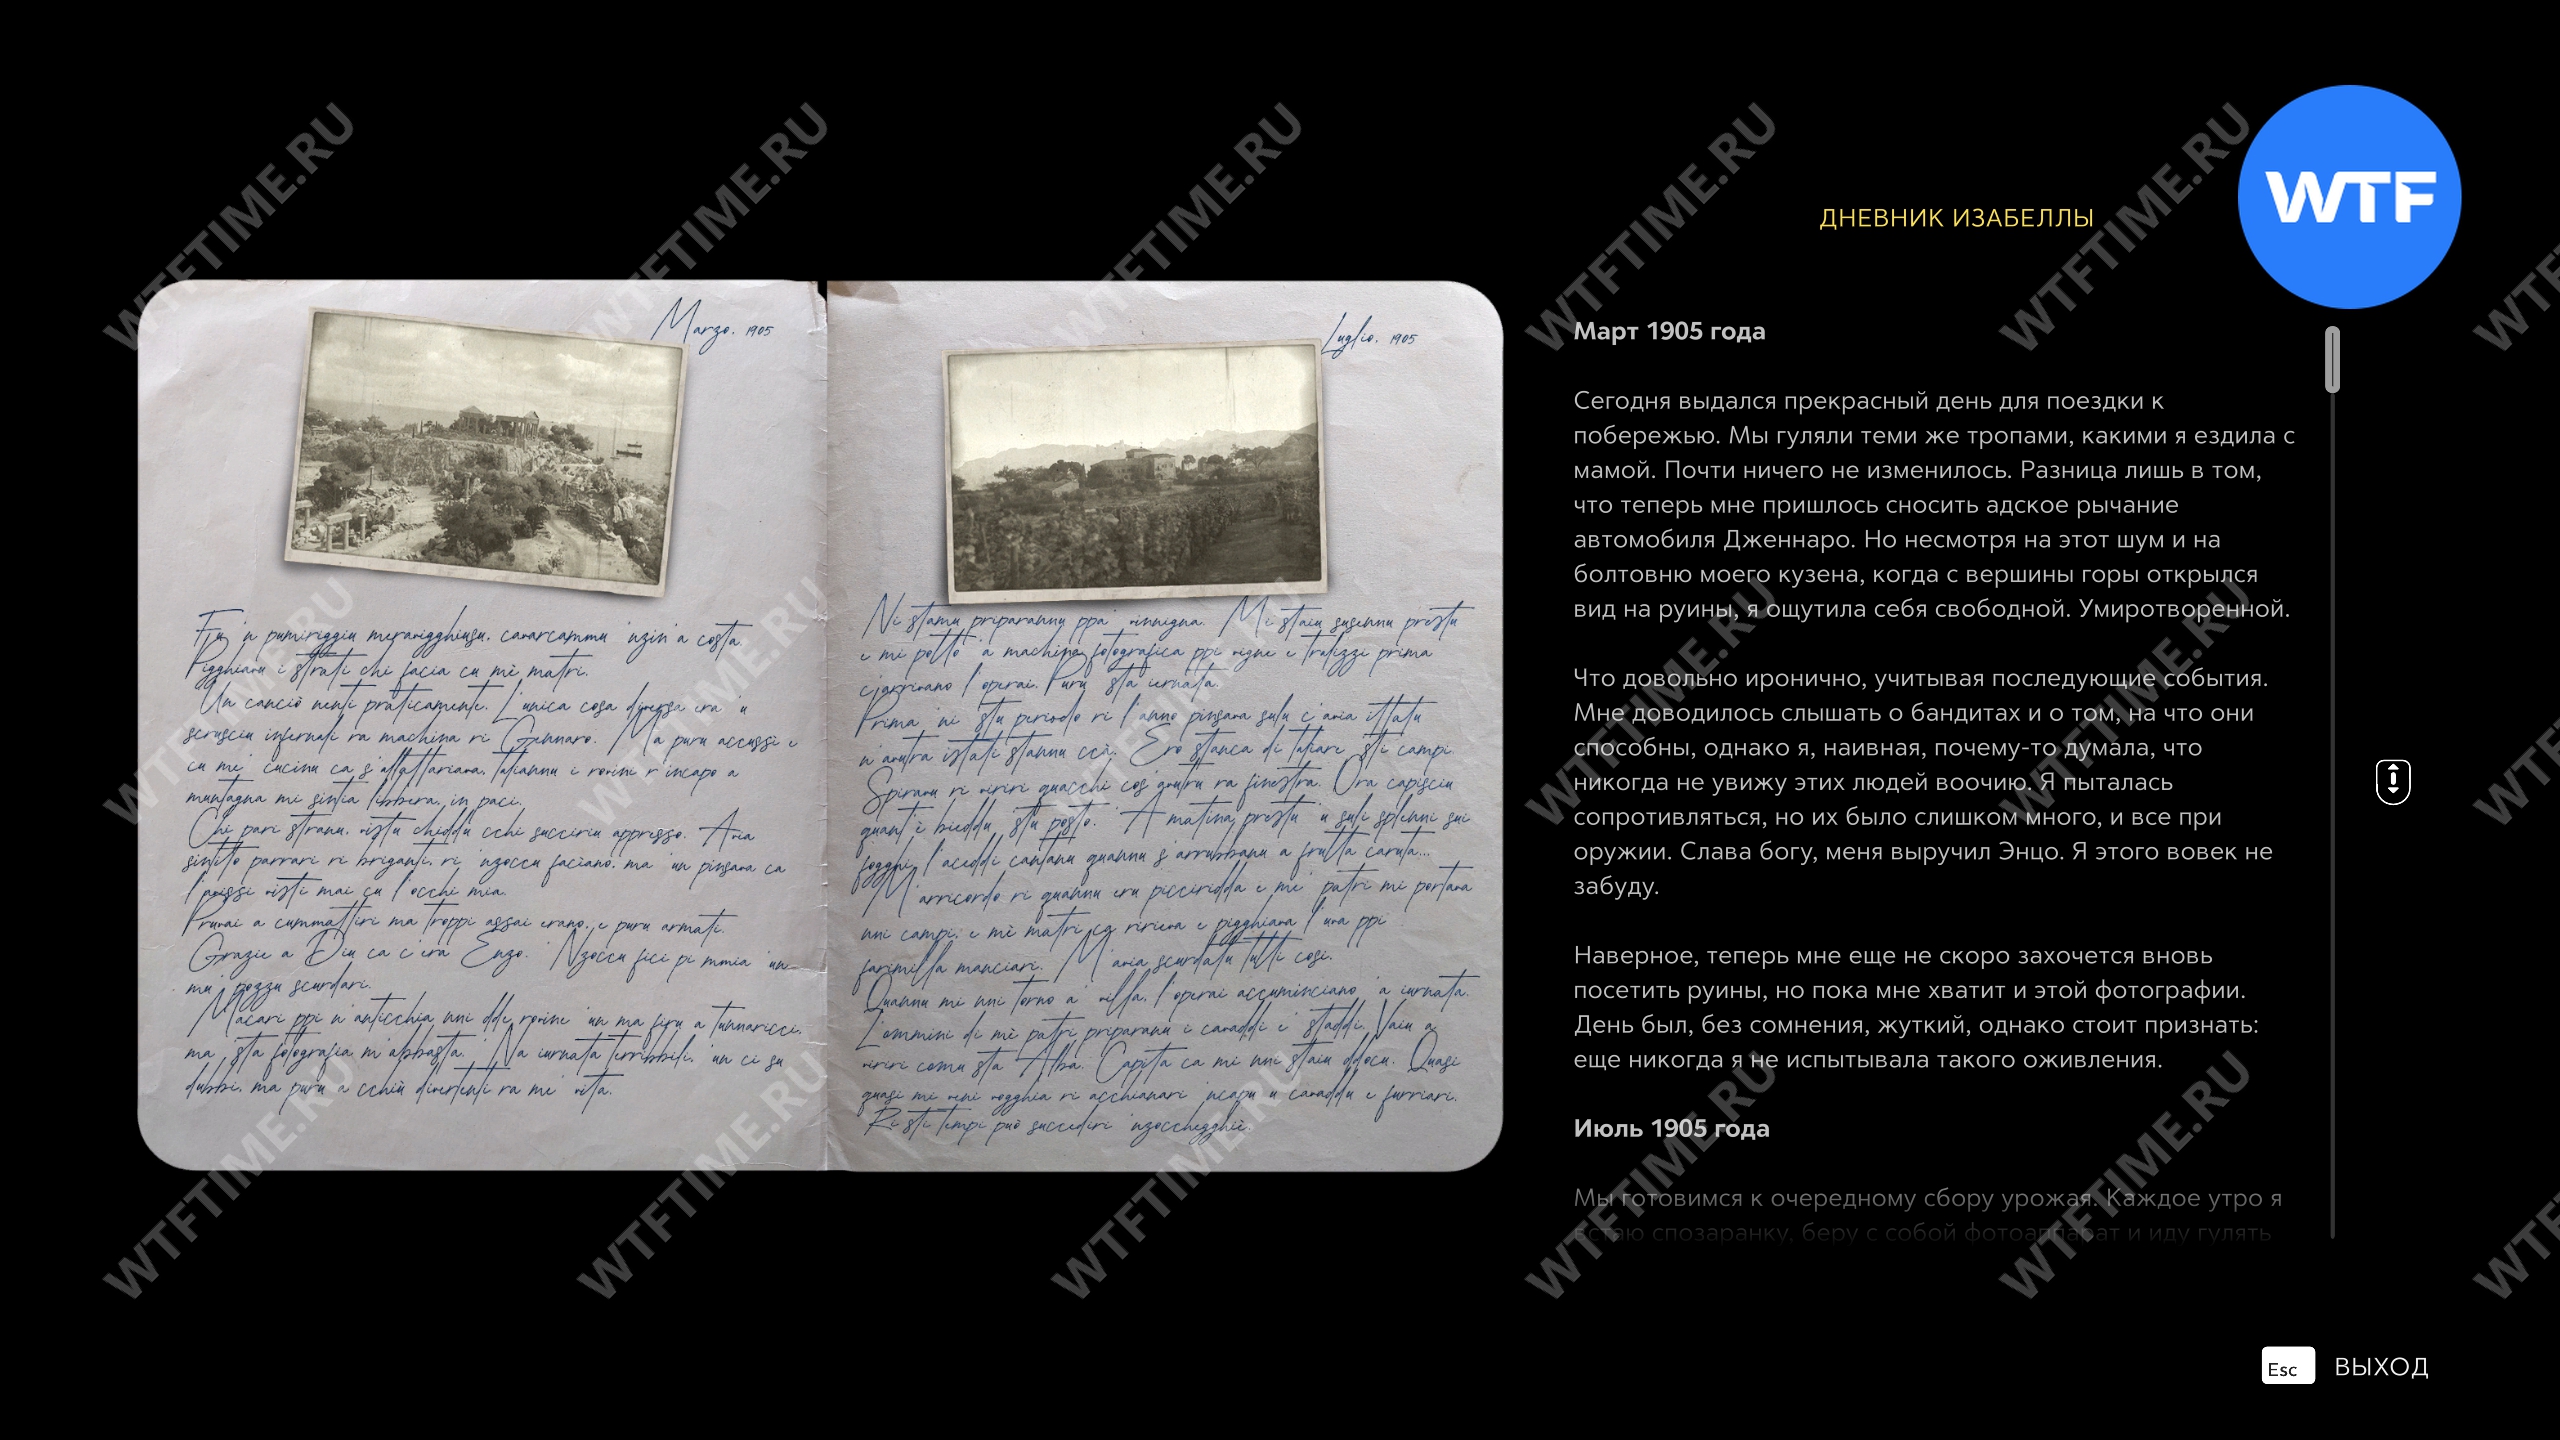 WTF
ДНЕВНИК ИЗАБЕЛЛЫ
Marzo, 1905
Fu 'n pumiriggiu meravigghiusu, cavarcammu 'nzin'a costa.
Pigghiavu i strati chi facia cu mè matri.
Un canciò nenti praticamente. L'unica cosa diversa era 'u
scrusciu infernali ra machina ri Gennaro. Ma puru accussì e
cu me' cucinu ca s'allattariava, taliannu i rovini r'incapo a
muntagna mi sintia libbera, in paci.
Chi pari stranu, vistu chiddu cchi succiriu appresso. Avia
sintito parrari ri briganti, ri 'nzoccu faciano, ma 'un pinsava ca
l'avissi visti mai cu l'occhi mia.
Pruvai a cummattiri ma troppi assai erano, e puru armati.
Grazie a Diu ca c'era Enzo. 'Nzoccu fici pi mmia 'un
mu pozzu scurdari.
Macari ppi n'anticchia nni ddi rovine 'un ma firu a turnaricci,
ma 'sta fotografia m'abbasta. 'Na iurnata terribbili, 'un ci su
dubbi, ma puru a cchiù divertenti ra me' vita.
Luglio, 1905
Ni stamu priparannu ppa' vinnigna. Mi staiu susennu prestu
e mi potto' a machina fotografica ppi vigne e tralizzi prima
c'arrivano l'operai. Puru 'sta iurnata.
Prima 'ni 'stu periodo ri l'anno pinsava sulu c'avia ittatu
n'autra istati stannu ccà. Ero stanca di taliare 'sti campi.
Spirava ri viriri quacchi cos'autru ra finestra. Ora capisciu
quant'è bieddu 'stu posto. 'A matina prestu 'u suli splenni sui
fogghi, l'aceddi cantanu quannu s'arrubbanu a frutta caruta...
M'arricordo ri quannu era picciridda e me' patri mi portava
nni campi, e mè matri ca rireva e pigghiava l'uva ppi
farimilla manciari. M'avia scurdatu tutti così.
Quannu mi nni torno a' villa, l'operai accuminciano 'a iurnata.
L'ommini di mè patri priparanu i cavaddi e' staddi. Vaiu a
viriri comu sta Alba. Capita ca mi nni staiu ddocu. Quasi
quasi mi veni vogghia ri acchianari 'ncapu u cavaddu e furriari.
Ri sti tempi può succediri 'nzoccheggghiè.
Март 1905 года
Сегодня выдался прекрасный день для поездки к
побережью. Мы гуляли теми же тропами, какими я ездила с
мамой. Почти ничего не изменилось. Разница лишь в том,
что теперь мне пришлось сносить адское рычание
автомобиля Дженнаро. Но несмотря на этот шум и на
болтовню моего кузена, когда с вершины горы открылся
вид на руины, я ощутила себя свободной. Умиротворенной.
Что довольно иронично, учитывая последующие события.
Мне доводилось слышать о бандитах и о том, на что они
способны, однако я, наивная, почему-то думала, что
никогда не увижу этих людей воочию. Я пыталась
сопротивляться, но их было слишком много, и все при
оружии. Слава богу, меня выручил Энцо. Я этого вовек не
забуду.
Наверное, теперь мне еще не скоро захочется вновь
посетить руины, но пока мне хватит и этой фотографии.
День был, без сомнения, жуткий, однако стоит признать:
еще никогда я не испытывала такого оживления.
Июль 1905 года
Мы готовимся к очередному сбору урожая. Каждое утро я
встаю спозаранку, беру с собой фотоаппарат и иду гулять
Esc ВЫХОД
WTFTIME.RU